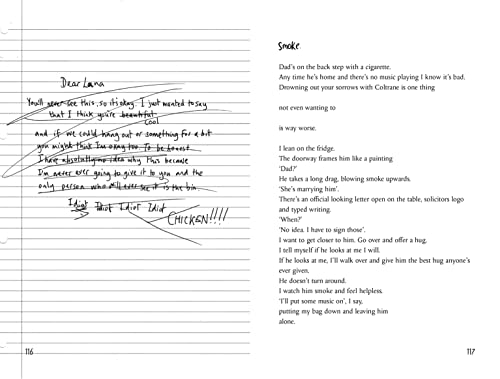 Dear Lana
You'll never see this, so it's okay. I just wanted to say
that I think you're beautiful
cool
and if we could hang out or something for a bit
you might think I'm okay too. To be honest
I have absolutely no idea why this because
I'm never ever going to give it to you and the
only person who'll ever see it is the bin.
Idiot Idiot Idiot Idiot
CHICKEN!!!!
116
Smoke.
Dad's on the back step with a cigarette.
Any time he's home and there's no music playing I know it's bad.
Drowning out your sorrows with Coltrane is one thing
not even wanting to
is way worse.
I lean on the fridge.
The doorway frames him like a painting
'Dad?'
He takes a long drag, blowing smoke upwards.
'She's marrying him'.
There's an official looking letter open on the table, solicitors logo
and typed writing.
'When?'
'No idea. I have to sign those'.
I want to get closer to him. Go over and offer a hug.
I tell myself if he looks at me I will.
If he looks at me, I'll walk over and give him the best hug anyone's
ever given.
He doesn't turn around.
I watch him smoke and feel helpless.
'I'll put some music on', I say,
putting my bag down and leaving him
alone.
117